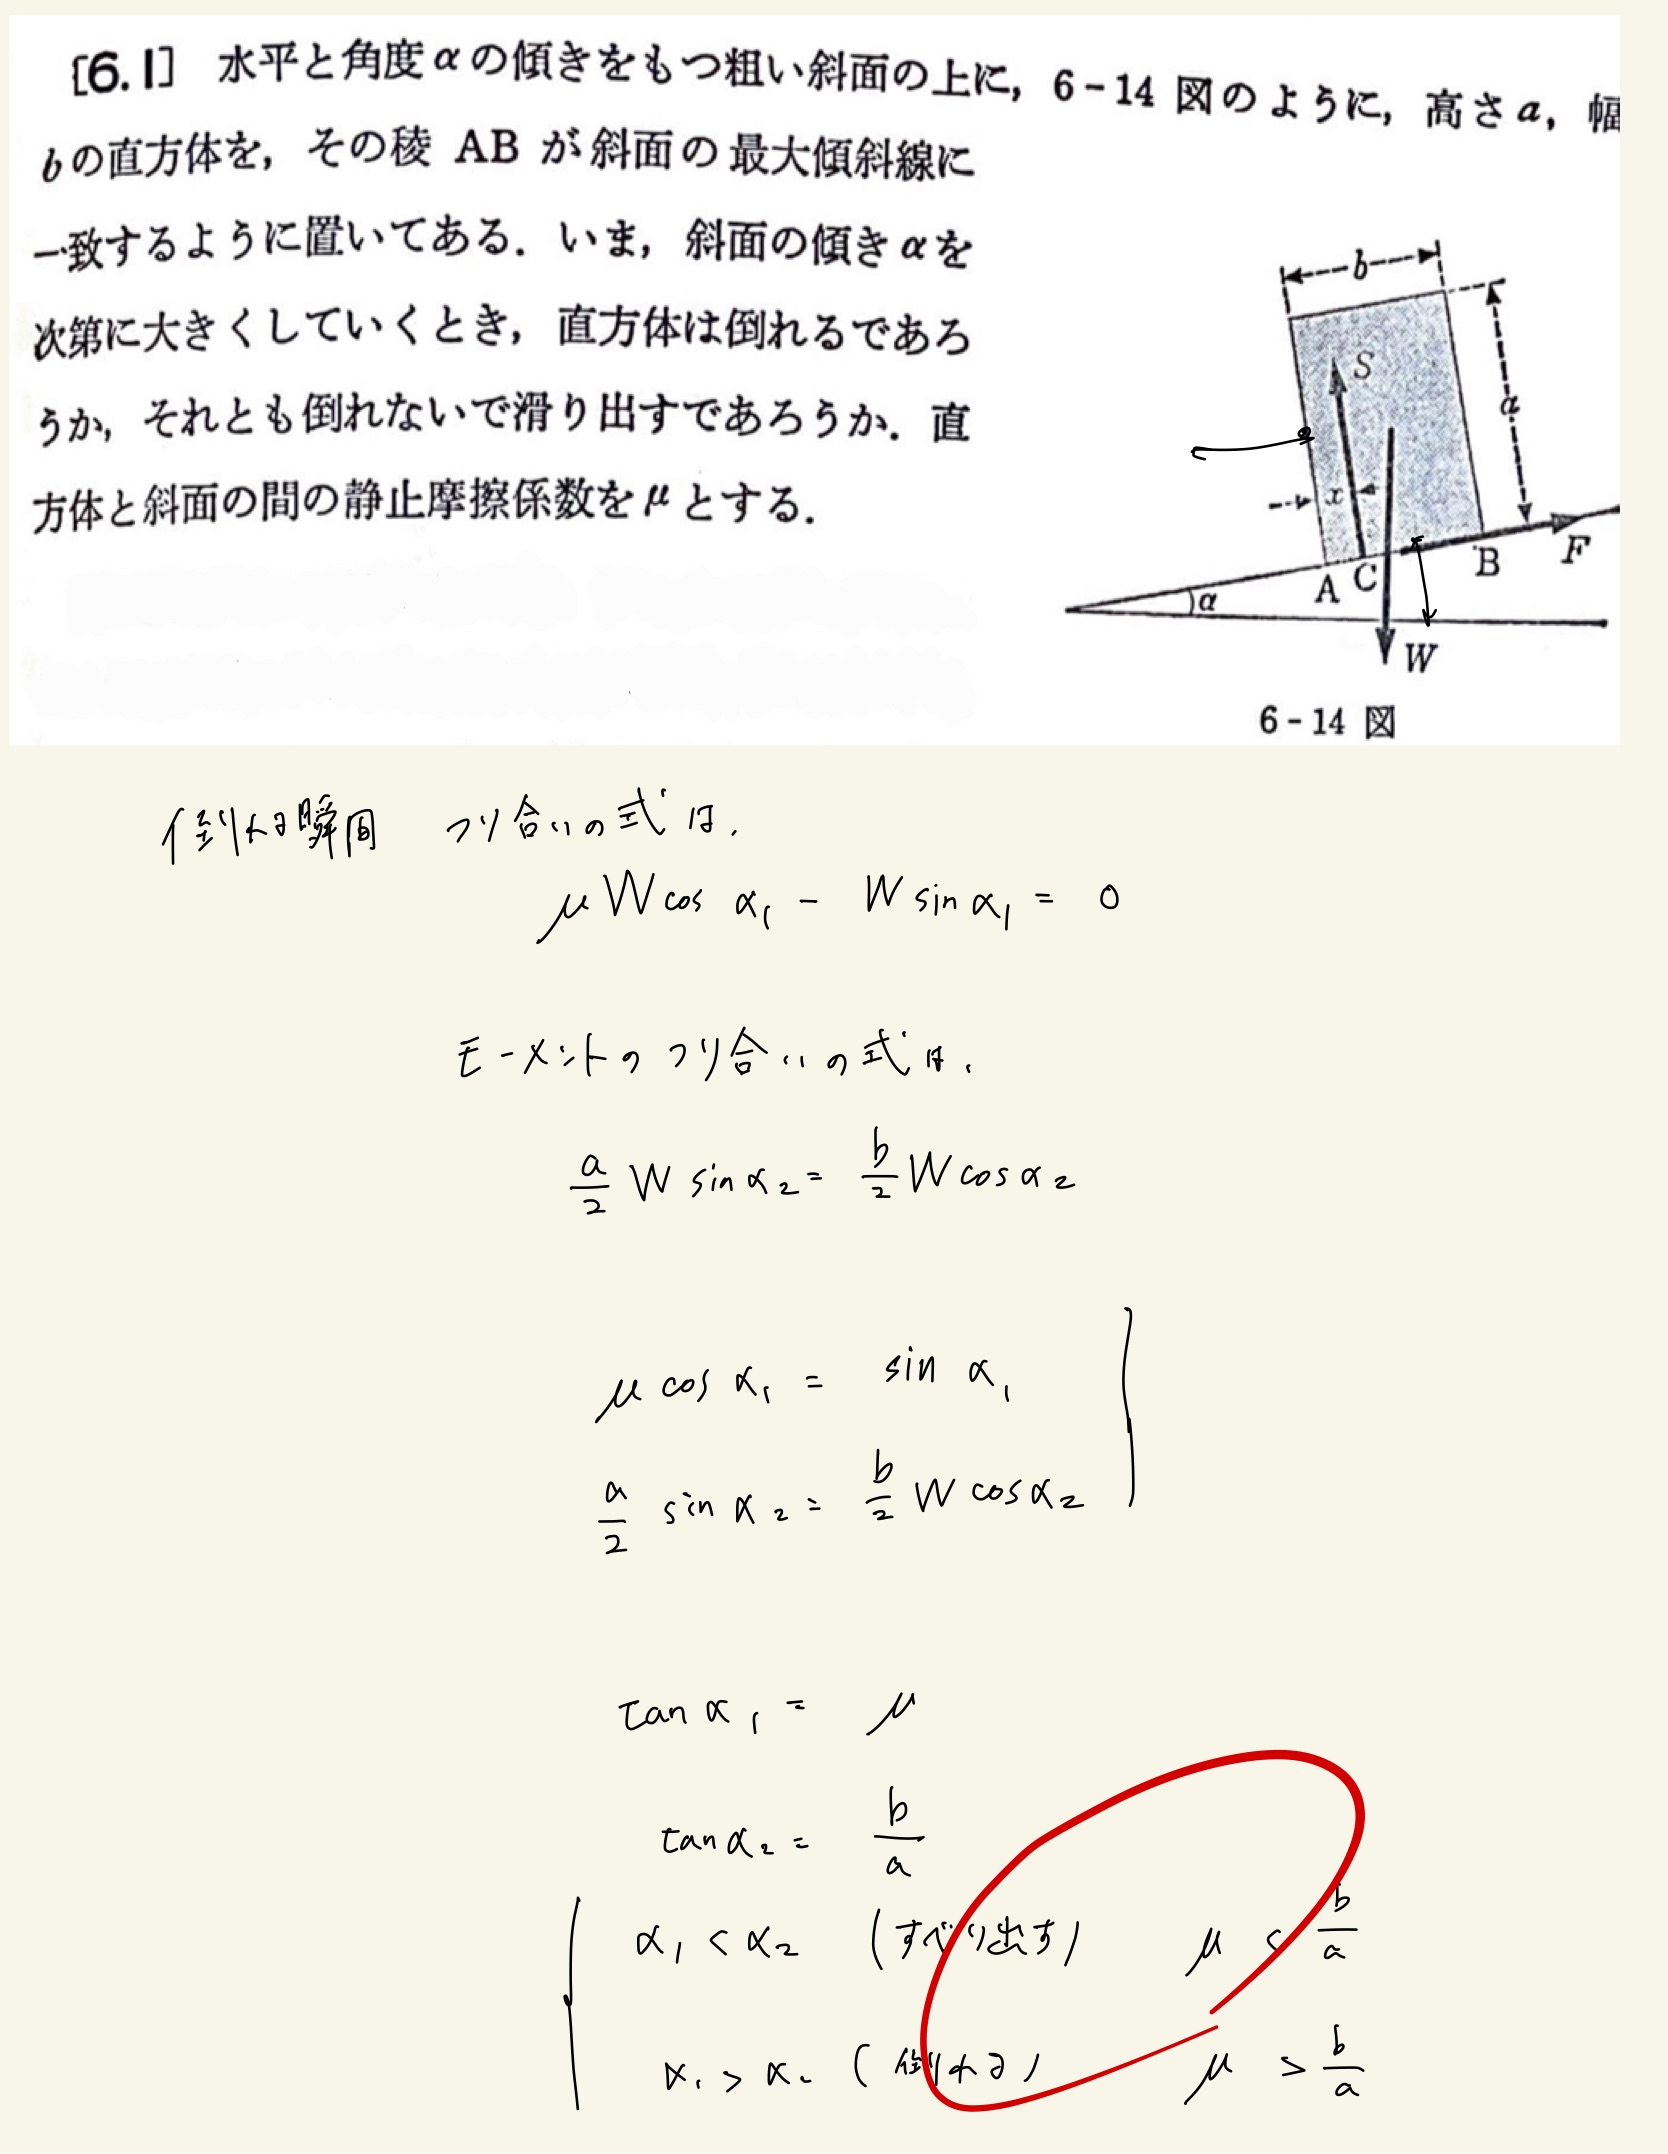 [6.1] 水平と角度αの傾きをもつ粗い斜面の上に，6-14 図のように，高さa，幅
bの直方体を，その稜 AB が斜面の最大傾斜線に
一致するように置いてある．いま，斜面の傾きαを
次第に大きくしていくとき，直方体は倒れるであろ
うか，それとも倒れないで滑り出すであろうか．直
方体と斜面の間の静止摩擦係数をμとする．
b
S
a
x
A C B F
α
W
6-14 図
倒れる瞬間 つり合いの式は,
μW cos α₁ - W sin α₁ = 0
モーメントのつり合いの式は,
a/2 W sin α₂ = b/2 W cos α₂
μ cos α₁ = sin α₁
a/2 sin α₂ = b/2 W cos α₂
tan α₁ = μ
tan α₂ = b/a
α₁ < α₂ (すべり出す) μ < b/a
α₁ > α₂ (倒れる) μ > b/a